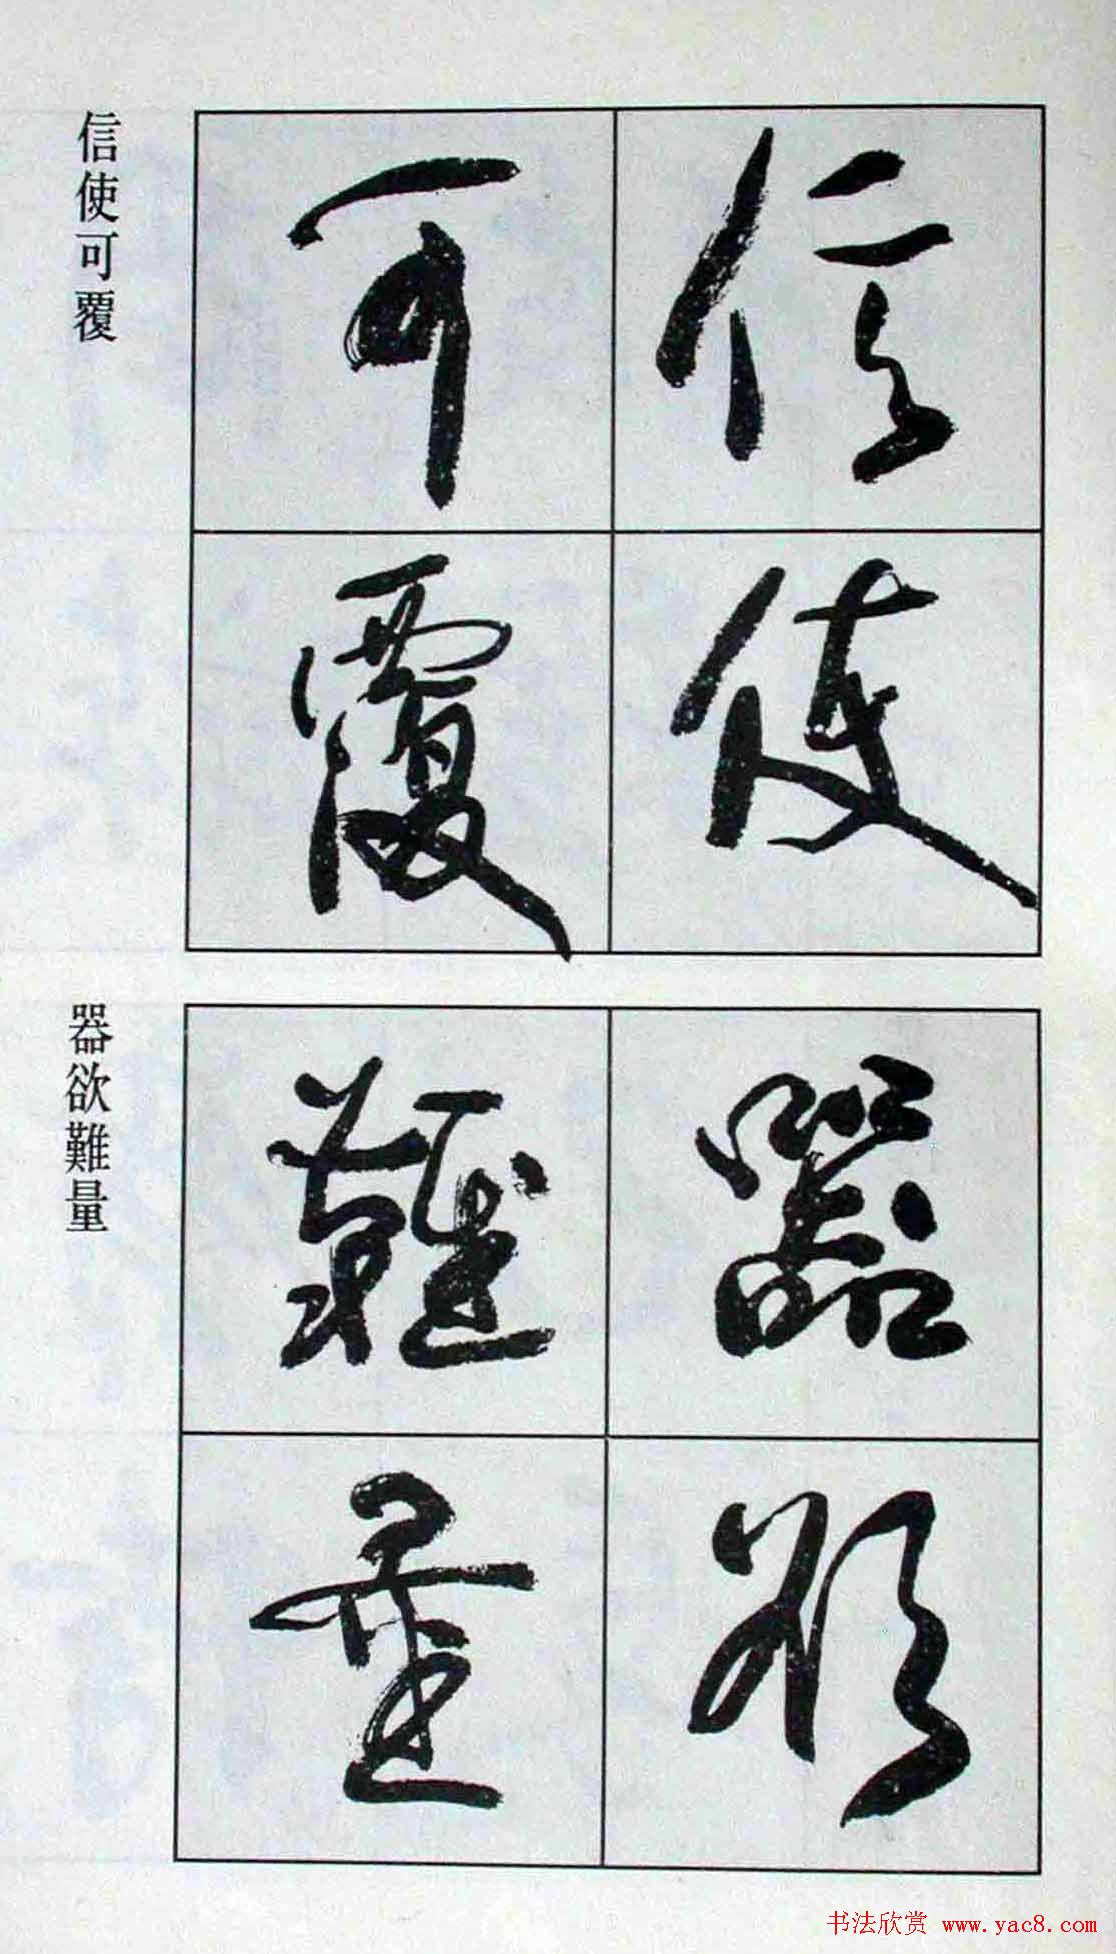 信使
可覆
信使可覆
器欲
難量
器欲難量
书法欣赏 www.yac8.com